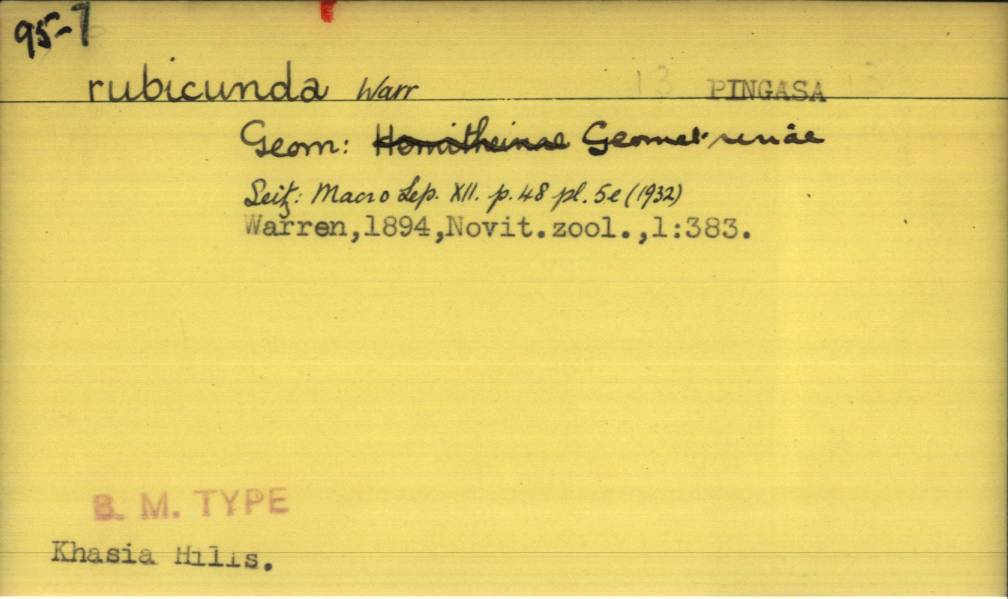 95-7
rubicunda Warr PINGASA
Geom: Hemitheinae Geometrinae
Seitz: Macro Lep. XII. p.48 pl.5e (1932)
Warren,1894,Novit.zool.,1:383.
B. M. TYPE
Khasia Hills.